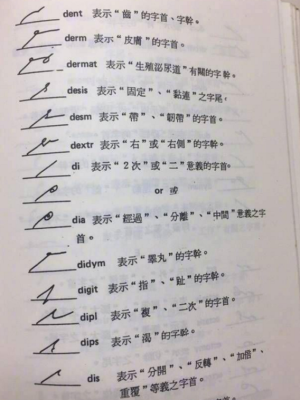 dent 表示“齒”的字首、字幹。
derm 表示“皮膚”的字首。
dermat 表示“生殖泌尿道”有關的字幹。
desis 表示“固定”、“黏連”之字尾，
desm 表示“帶”、“韌帶”的字首。
dextr 表示“右”或“右側”的字首。
di 表示“2次”或“二”意義的字首。
or
dia 表示“經過”、“分離”、“中間”意義之字
首。
didym 表示“睪丸”的字幹。
digit 表示“指”、“趾”的字幹。
dipl 表示“複”、“二次”的字首。
dips 表示“渴”的字幹。
dis 表示“分開”、“反轉”、“加倍”、
重覆”等義之字首。